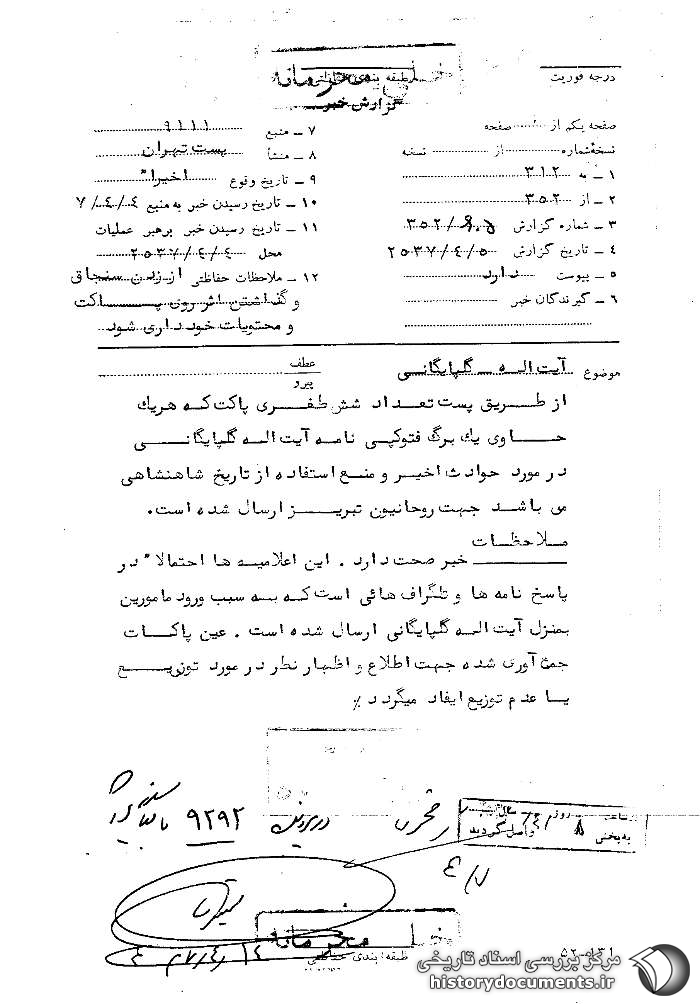 خیلی محرمانه
درجه فوریت
طبقه بندی حفاظتی
گزارش خبر
صفحه یکم از ۱ صفحه
نسخه شماره از نسخه
۱ – به ۳۱۲
۲ – از ۳۵۲
۳ – شماره گزارش ۳۵۲/
۴ – تاریخ گزارش ۲۵۳۷/۴/۵
۵ – پیوست دارد
۶ – گیرندگان خبر
۷ – منبع ۹۱۱۱
۸ – منشأ پست تهران
۹ – تاریخ وقوع اخیرا"
۱۰ – تاریخ رسیدن خبر به منبع ۷/۴/۴
۱۱ – تاریخ رسیدن خبر برهبر عملیات
محل ۲۵۳۷/۴/۴
۱۲ – ملاحظات حفاظتی از زدن سنجاق
و گذاشتن اثر روی پاکت
و محتویات خود داری شود
موضوع آیت اله – گلپایگانی
عطف
پیرو
از طریق پست تعداد شش طغری پاکت که هریك
حاوی یك برگ فتوکپی نامه آیت اله گلپایگانی
در مورد حوادث اخیر و منع استفاده از تاریخ شاهنشاهی
می باشد جهت روحانیون تبریز ارسال شده است.
ملاحظات
خبر صحت دارد . این اعلامیه ها احتمالا" در
پاسخ نامه ها و تلگراف هائی است که به سبب ورود مامورین
بمنزل آیت اله گلپایگانی ارسال شده است . عین پاکات
جمع آوری شده جهت اطلاع و اظهار نظر در مورد توزیع
یا عدم توزیع ایفاد میگردد ٪
در پرونده ۹۲۹۲
ساعت ۸ روز
به بخش واصل گردید
۴/۷
خیلی محرمانه
طبقه بندی حفاظتی
۳۷/۴/۱۴
مرکز بررسی اسناد تاریخی
historydocuments.ir